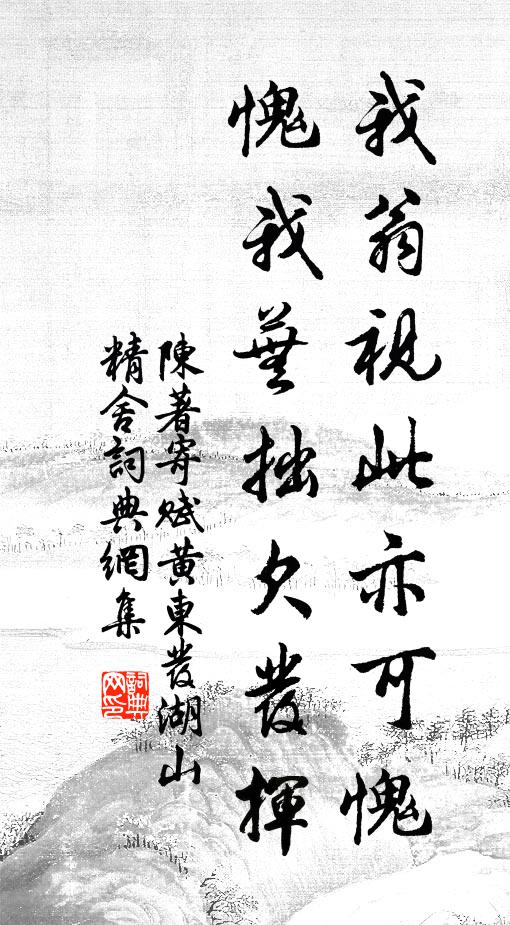 我翁視此亦可愧
愧我蕪拙欠發揮
陳著寄賦黃東發湖山
精舍詞典網集
詞典網印